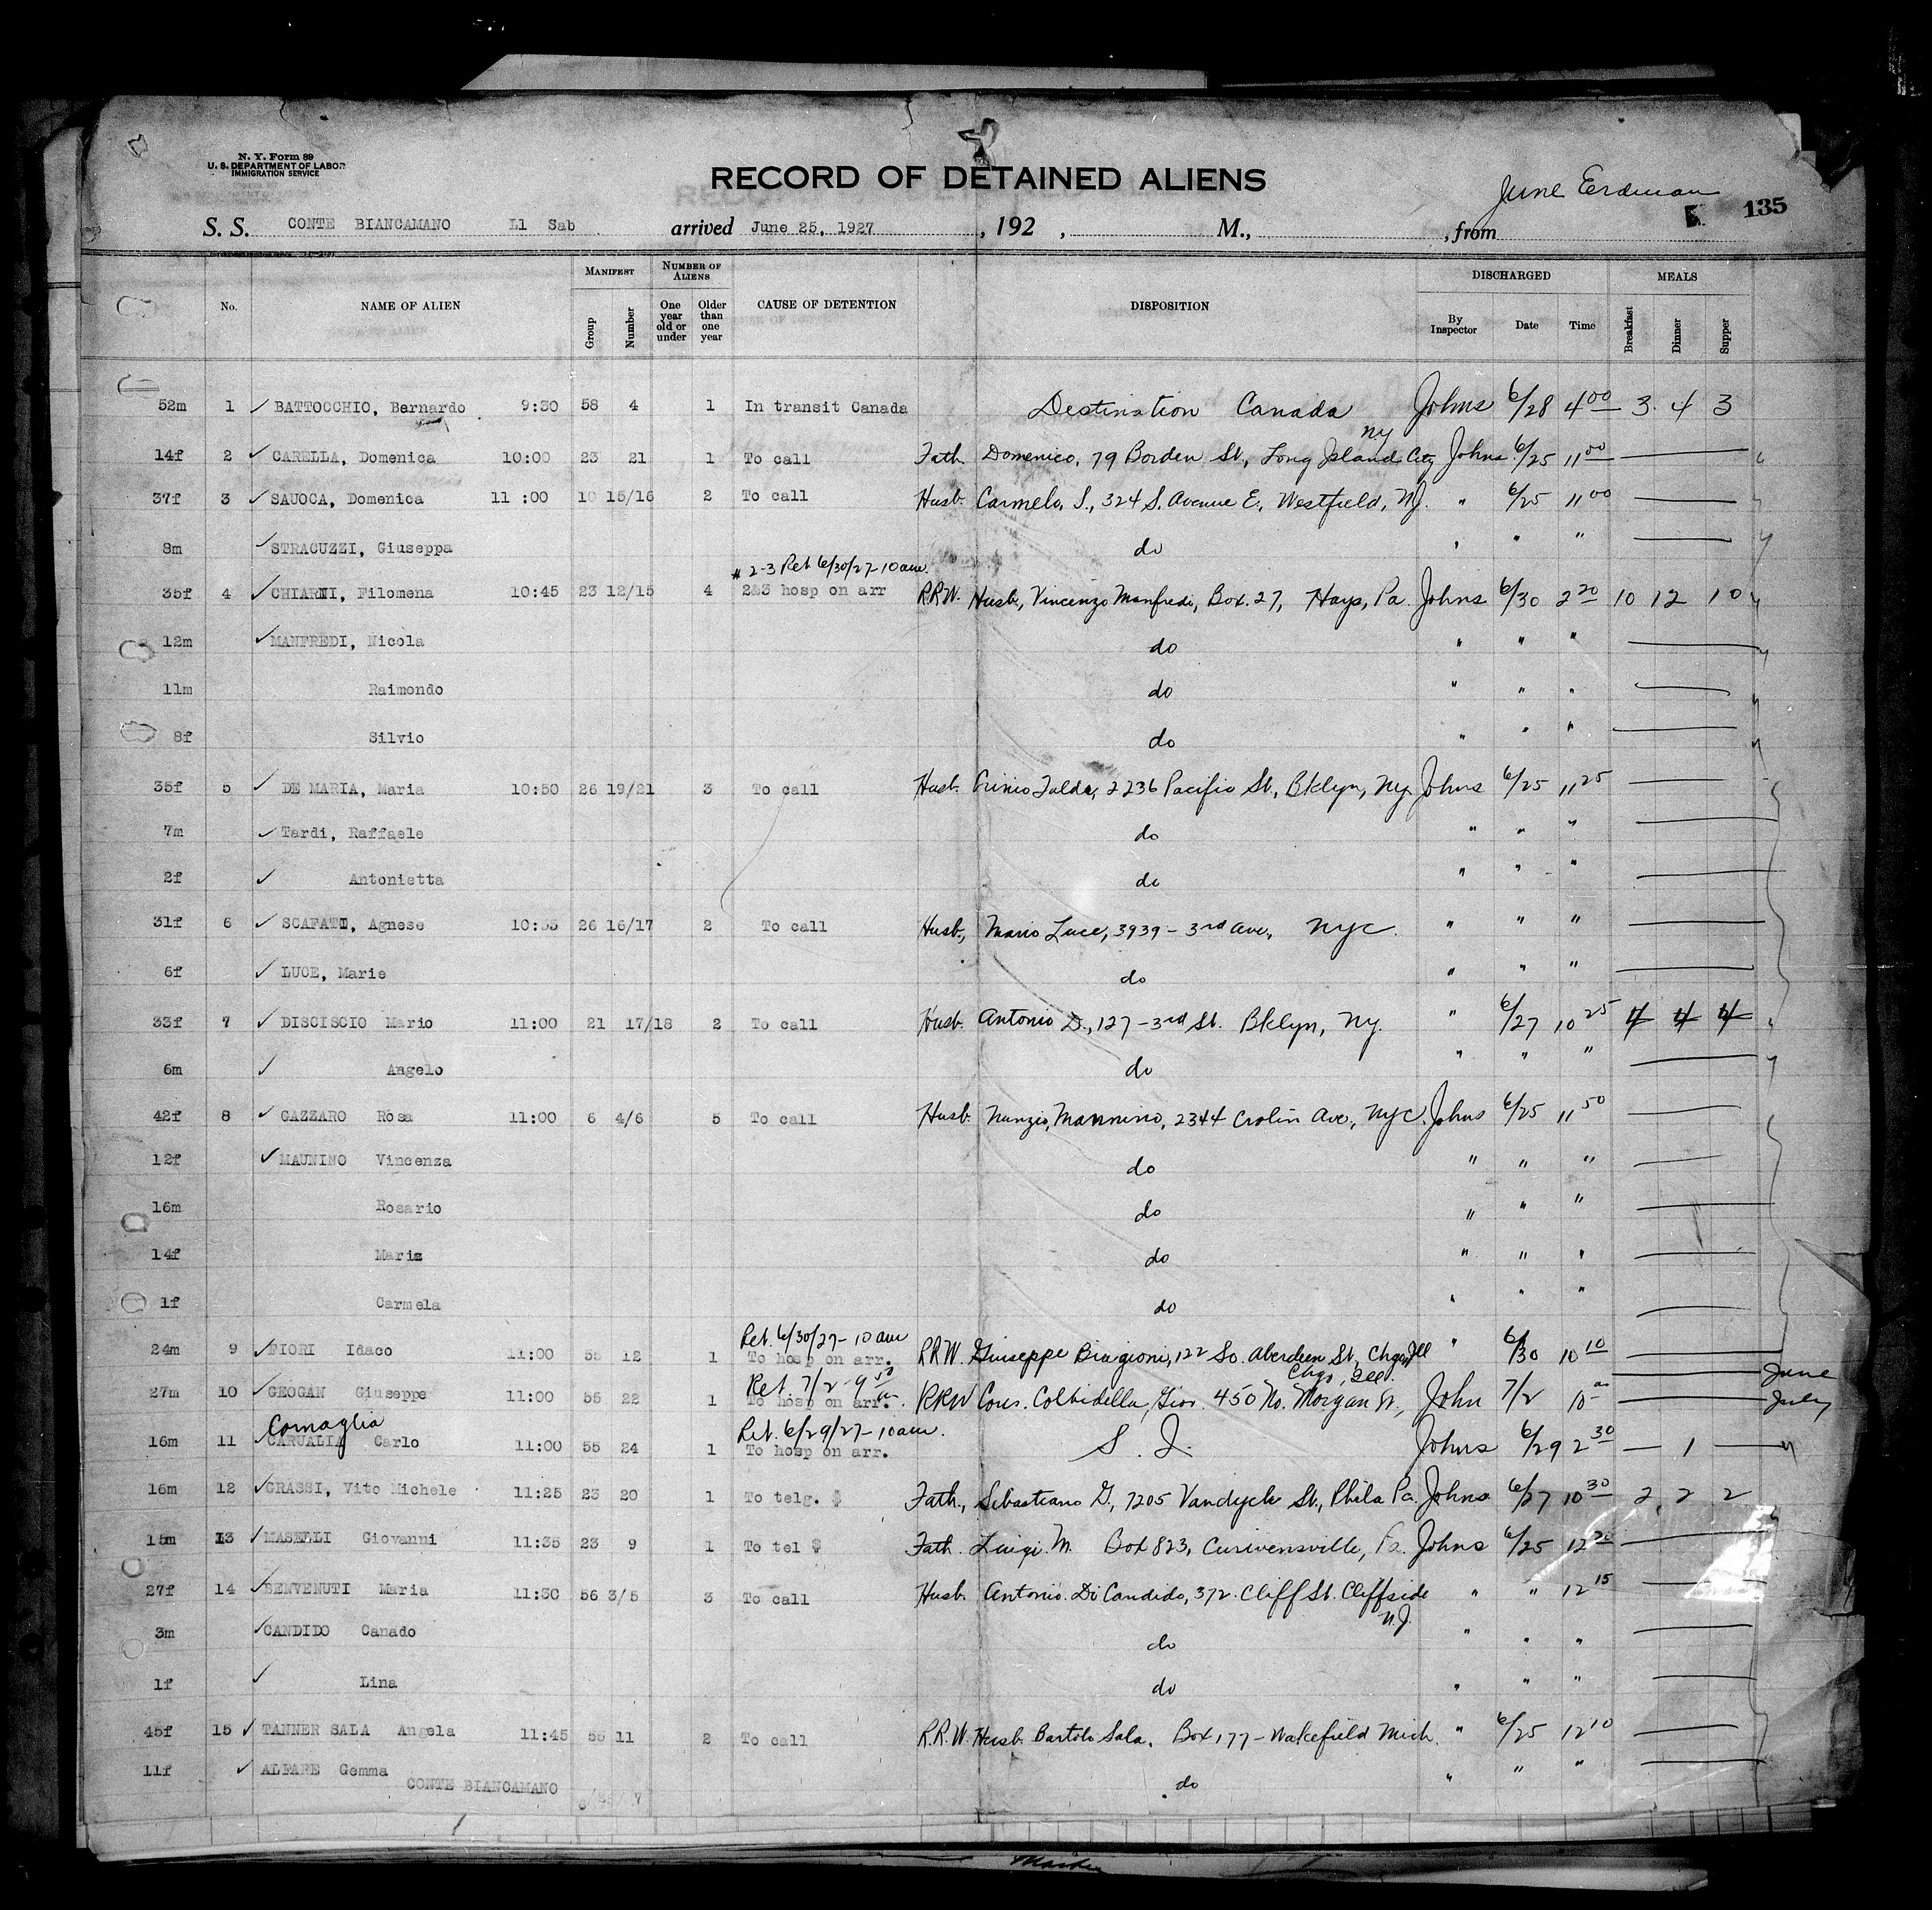 N. Y. Form 89
U. S. DEPARTMENT OF LABOR
IMMIGRATION SERVICE
RECORD OF DETAINED ALIENS
June Eerdman
135
S. S. CONTE BIANCAMANO Ll Sab arrived June 25, 1927, 192 , M., , from
No. NAME OF ALIEN MANIFEST Group Number NUMBER OF ALIENS One year old or under Older than one year CAUSE OF DETENTION DISPOSITION DISCHARGED By Inspector Date Time MEALS Breakfast Dinner Supper
52m 1 ✓ BATTOCCHIO, Bernardo 9:30 58 4 1 In transit Canada Destination Canada Johns 6/28 4 00 3 4 3
14f 2 ✓ CARELLA, Domenica 10:00 23 21 1 To call Fath. Domenico, 79 Borden St., Long Island City NY Johns 6/25 11 00
37f 3 ✓ SAUOCA, Domenica 11 :00 10 15/16 2 To call Husb. Carmelo, S., 324 S. Avenue E., Westfield, NJ. " 6/25 11 00
8m ✓ STRACUZZI, Giuseppa do " " "
# 2-3 Ret 6/30/27-10 am.
35f 4 ✓ CHIARNI, Filomena 10:45 23 12/15 4 2&3 hosp on arr R.R.W. Husb., Vincenzo Manfredi, Box. 27, Hays, Pa. Johns 6/30 2 20 10 12 10
12m ✓ MANFREDI, Nicola do " " "
11m Raimondo do " " "
8f Silvio do " " "
35f 5 ✓ DE MARIA, Maria 10:50 26 19/21 3 To call Husb. 2236 Pacific St., Bklyn, NY Johns 6/25 11 25
7m ✓ Tardi, Raffaele do " " "
2f ✓ Antonietta do " " "
31f 6 ✓ SCAFATI, Agnese 10:55 26 16/17 2 To call Husb., Mario Luce, 3939 - 3rd Ave., NYC. " " "
6f ✓ LUCE, Marie do " " "
33f 7 ✓ DISCISCIO Mario 11:00 21 17/18 2 To call Husb. Antonio D., 127 - 3rd St. Bklyn, NY. " 6/27 10 25 4 4 4
6m ✓ Angelo do " " "
42f 8 ✓ GAZZARO Rosa 11:00 6 4/6 5 To call Husb. Nunzio, Mannino, 2344 Crolin Ave., NYC. Johns 6/25 11 50
12f ✓ MAUNINO Vincenza do " " "
16m Rosario do " " "
14f Maria do " " "
1f Carmela do " " "
Ret. 6/30/27 - 10 am
24m 9 ✓ FIORI Idaco 11:00 55 12 1 To hosp on arr. R.R.W. Giuseppe Biagioni, 122 So. Aberdeen St., Chgo, Ill " 6/30 10 10
Ret. 7/2 - 9 50 a. Chgo, Ill. June
27m 10 ✓ GEOGAN Giuseppe 11:00 55 22 1 To hosp on arr. RRW Cous. Colbidella, Gios. 450 No. Morgan St., John 7/2 10 am July
Cornaglia Ret. 6/29/27 - 10 am.
16m 11 CARUALIA Carlo 11:00 55 24 1 To hosp on arr. S. I. Johns 6/29 2 30 1
16m 12 ✓ GRASSI, Vito Michele 11:25 23 20 1 To telg. $ Fath., Sebastiano G., 7205 Vandyck St., Phila Pa. Johns 6/27 10 30 2 2 2
15m 13 ✓ MASELLI Giovanni 11:35 23 9 1 To tel $ Fath. Luigi M. Box 823, Curivensville, Pa. Johns 6/25 12 20
27f 14 ✓ BENVENUTI Maria 11:30 56 3/5 3 To call Husb. Antonio Di Candido, 372 Cliff St. Cliffside N.J. " " 12 15
3m ✓ CANDIDO Canado do " " "
1f ✓ Lina do " " "
45f 15 ✓ TANNER SALA Angela 11:45 55 11 2 To call R.R.W. Husb. Bartolo Sala, Box 177 - Wakefield Mich. " 6/25 12 10
11f ✓ ALPARE Gemma do " " "
CONTE BIANCAMANO